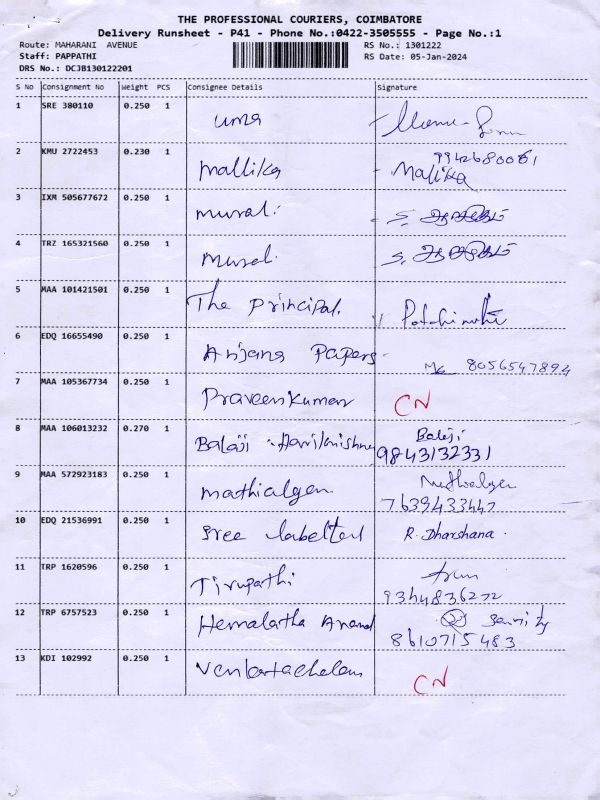 THE PROFESSIONAL COURIERS, COIMBATORE
Delivery Runsheet - P41 - Phone No.:0422-3505555 - Page No.:1
Route: MAHARANI AVENUE RS No.: 1301222
Staff: PAPPATHI RS Date: 05-Jan-2024
DRS No.: DCJB130122201
S No Consignment No Weight PCS Consignee Details Signature
1 SRE 380110 0.250 1 uma
2 KMU 2722453 0.230 1 mallika 9942680081
Mallika
3 IXM 505677672 0.250 1 murali
4 TRZ 165321560 0.250 1 mural
5 MAA 101421501 0.250 1 The principal.
6 EDQ 16655490 0.250 1 Anjana Papers 8056547894
7 MAA 105367734 0.250 1 Praveenkumar CN
8 MAA 106013232 0.270 1 Balaji Harikrishna Balaji
9843132331
9 MAA 572923183 0.250 1 mathialgan
7639433447
10 EDQ 21536991 0.250 1 Sree R. Dharshana.
11 TRP 1620596 0.250 1 Tirupathi
9364836272
12 TRP 6757523 0.250 1 Hemalatha Anand
8610715483
13 KDI 102992 0.250 1 Venkatachalam CN